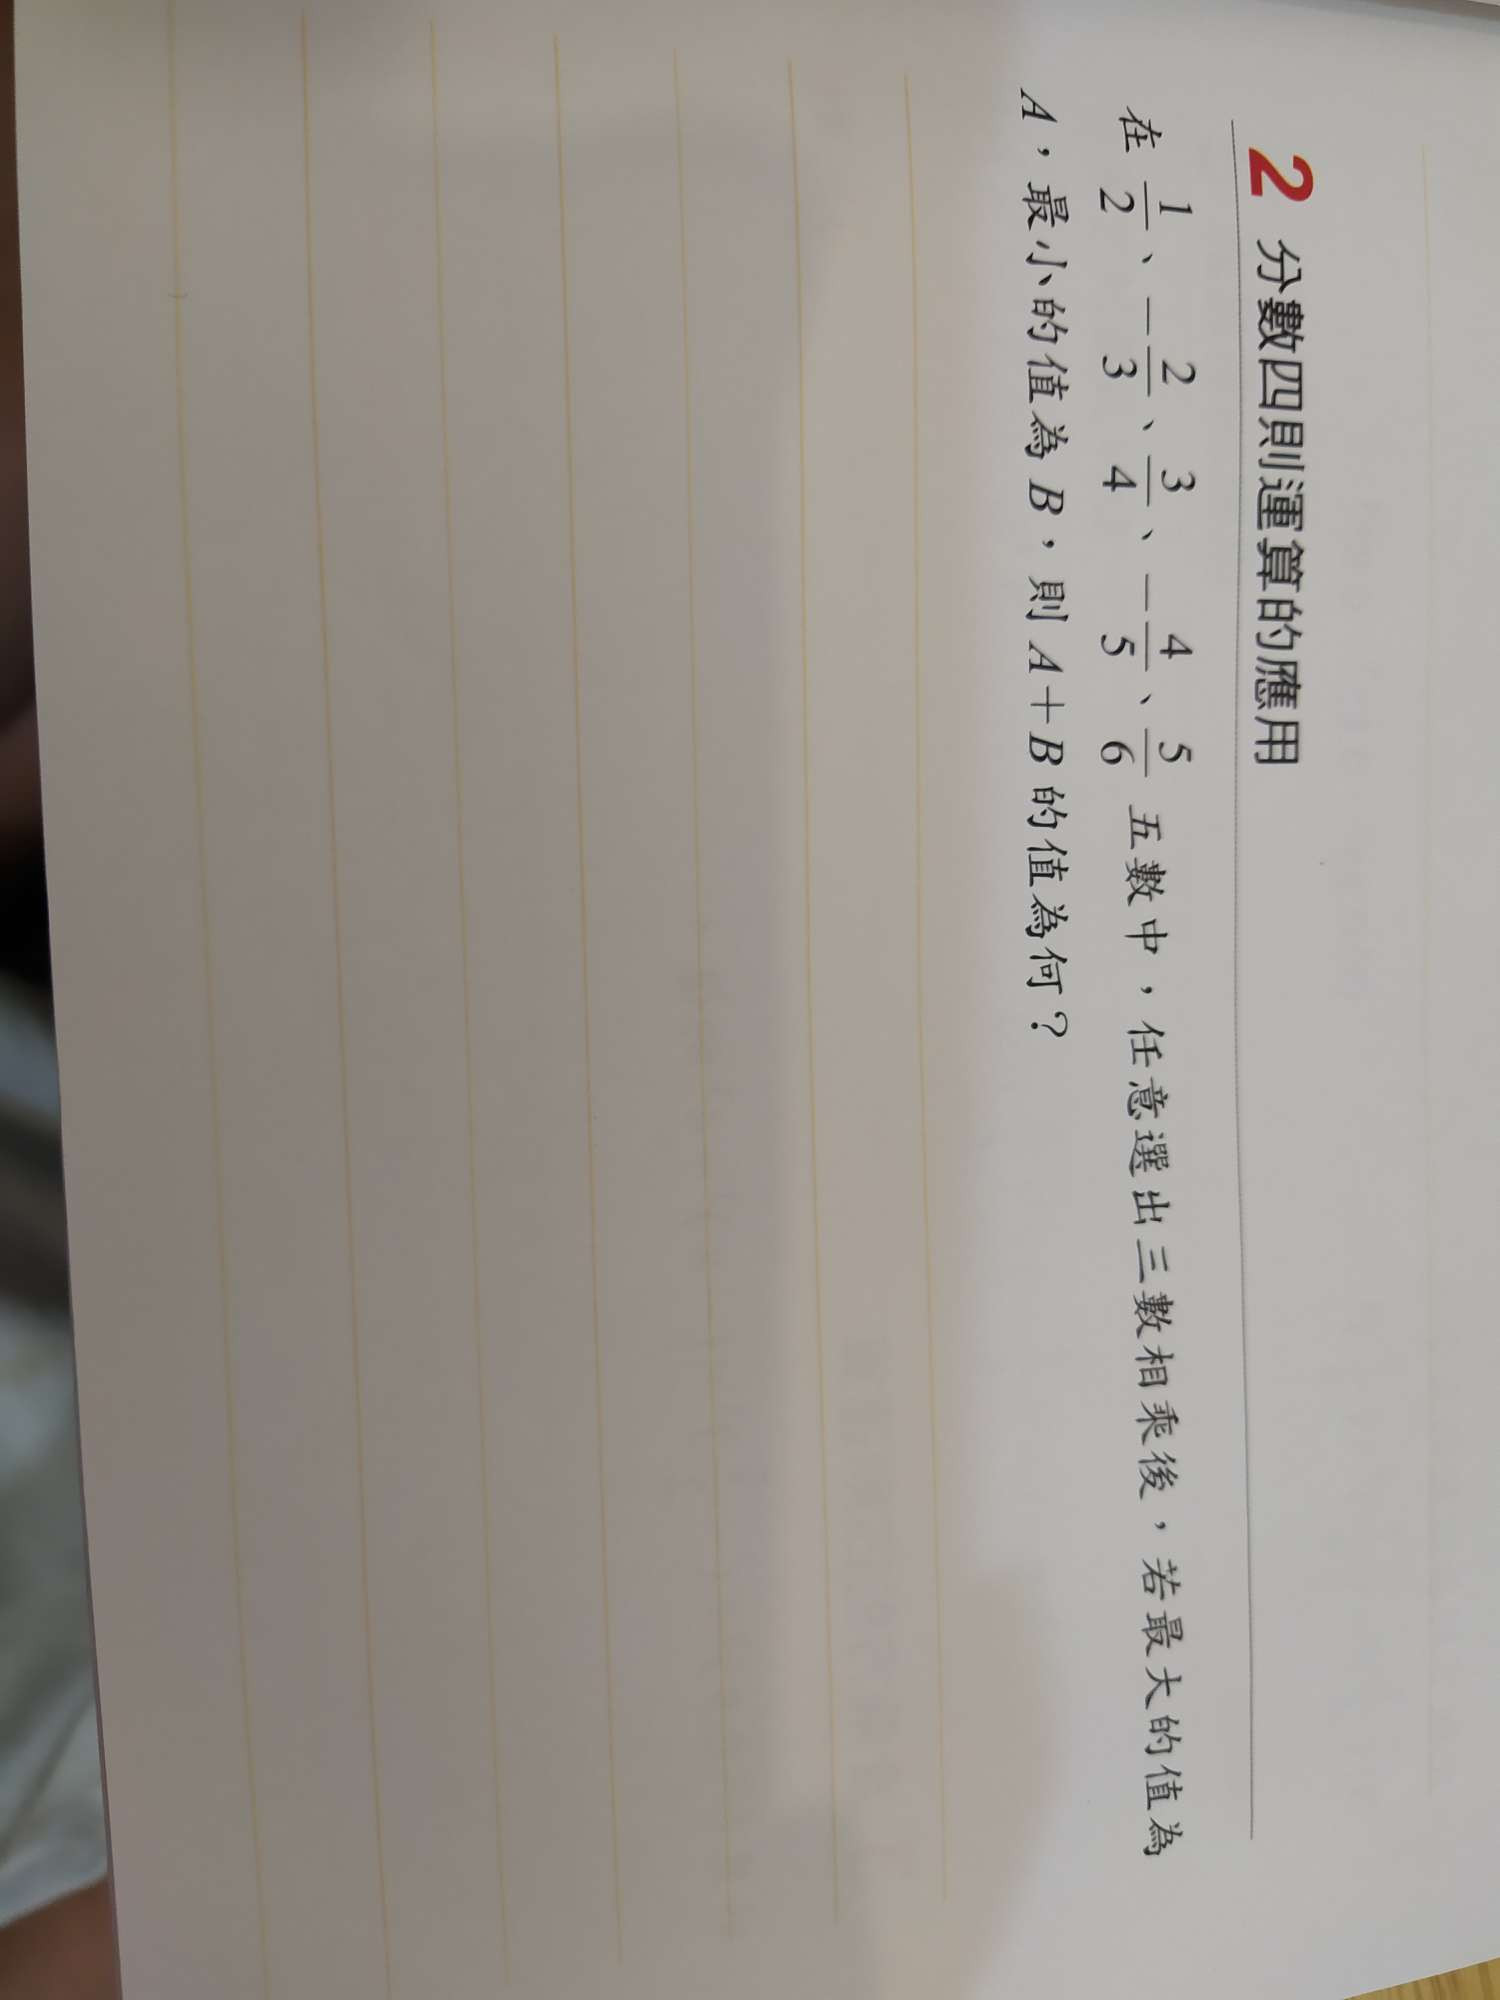 2 分數四則運算的應用
在 1/2、-2/3、3/4、-4/5、5/6 五數中，任意選出三數相乘後，若最大的值為
A，最小的值為 B，則 A+B 的值為何？